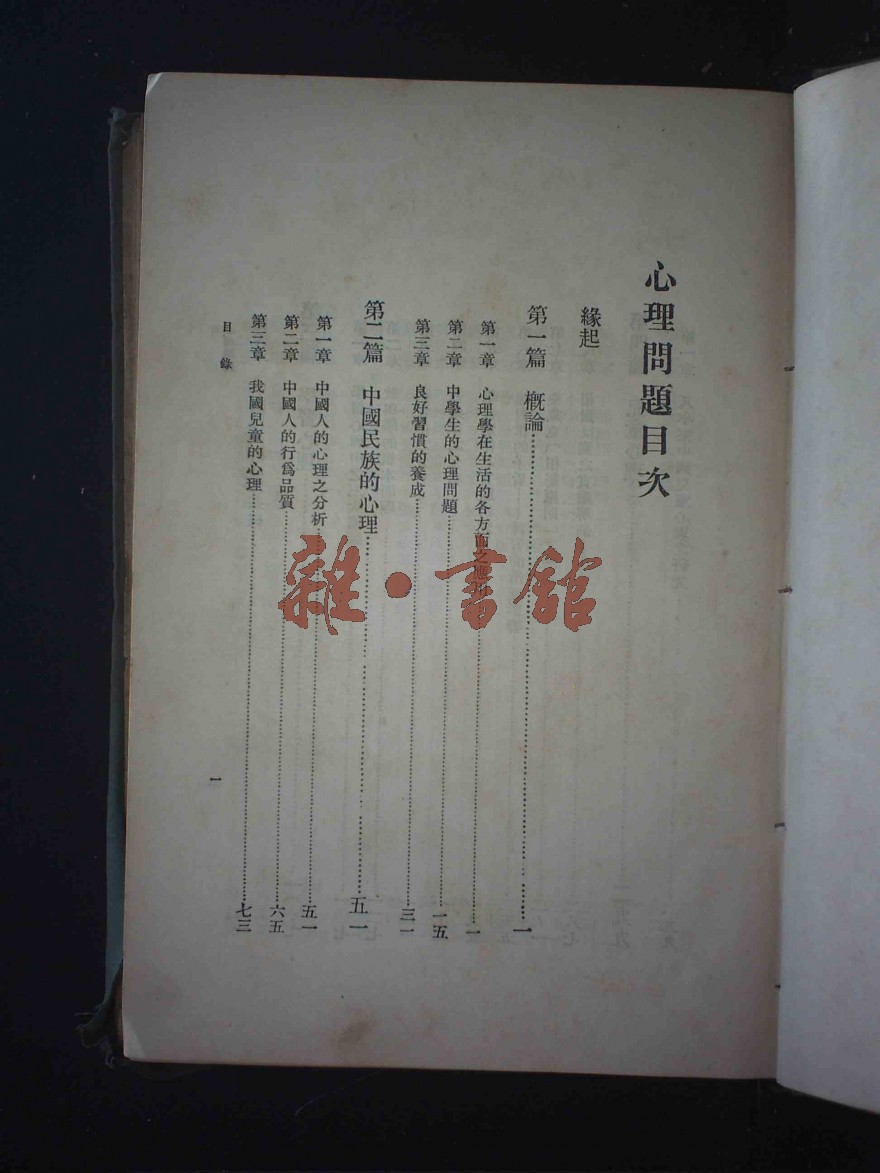 心理問題目次
緣起
第一篇 概論……一
第一章 心理學在生活的各方面之應用……一
第二章 中學生的心理問題……一五
第三章 良好習慣的養成……三一
第二篇 中國民族的心理……五一
第一章 中國人的心理之分析……五一
第二章 中國人的行爲品質……六五
第三章 我國兒童的心理……七三
目錄
一
雜·書館